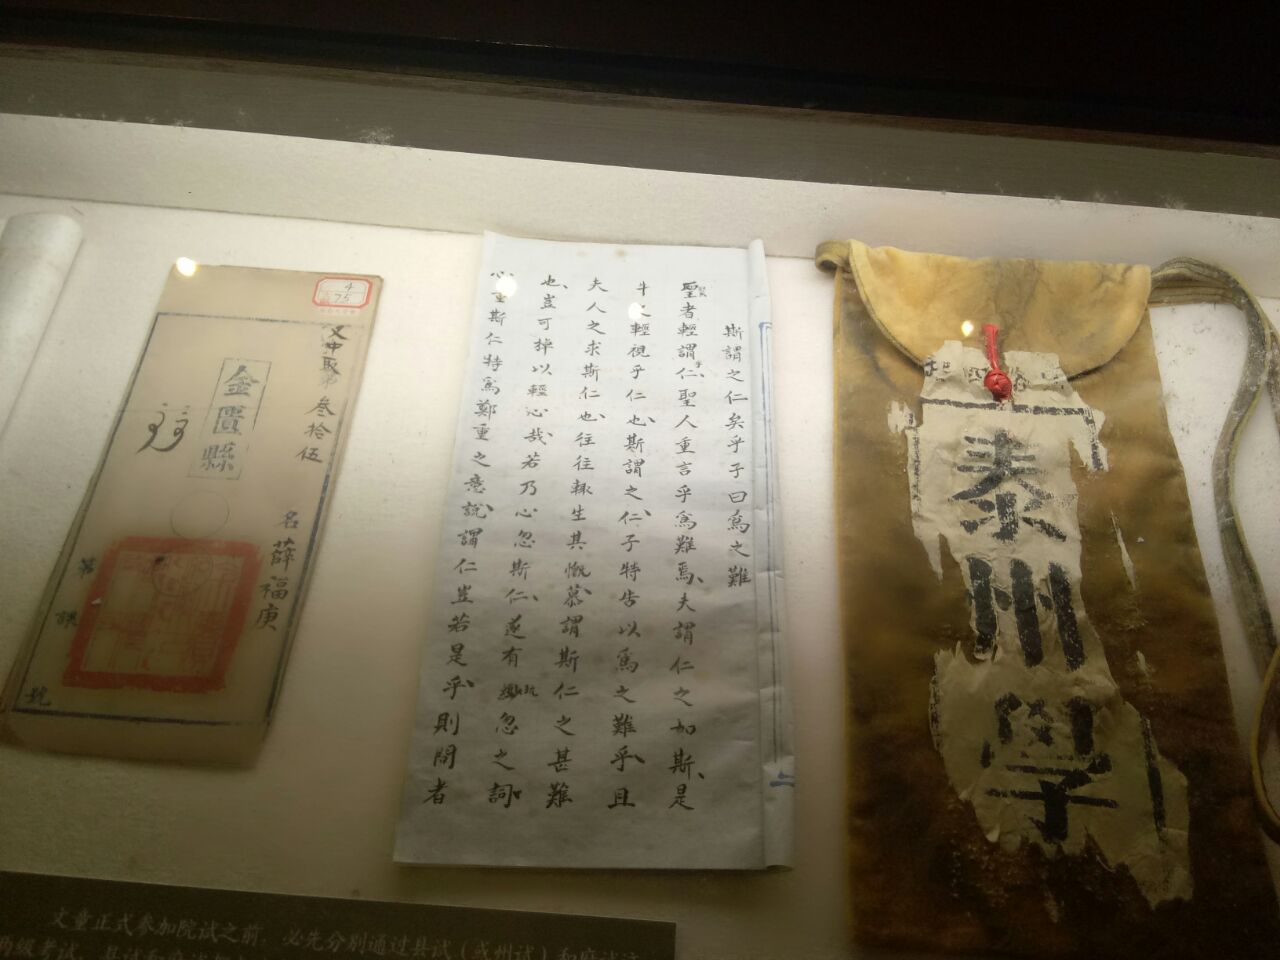 4
75
又中取第叁拾伍
金匱縣
名薛福庚
號
斯謂之仁矣乎子曰爲之難
聖者輕謂仁聖人重言乎爲難焉夫謂仁之如斯是
輕視乎仁也斯謂之仁子特告以爲之難乎且
夫人之求斯仁也往往輒生其慨慕謂斯仁之甚難
也豈可掉以輕心哉若乃心忽斯仁遂有忽之詞
心重斯仁特爲鄭重之意說謂仁豈若是乎則問者
泰州學
文童正式参加院试之前，必先分别通过县试（或州试）和府试这
两级考试。县试和府试